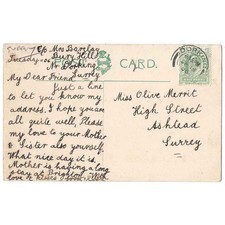 C/o Mrs Barclay
Tuesday. Bury Hill
Nr Dorking
Surrey
POST CARD.
My Dear Friend
Just a line
to let you know my
address. I hope you are
all quite well, Please
my love to your Mother
& Sister also yourself.
What nice day it is.
Mother is having a long
stay at Brighton
love &
Miss Olive Merrit
High Street
Ashtead
Surrey